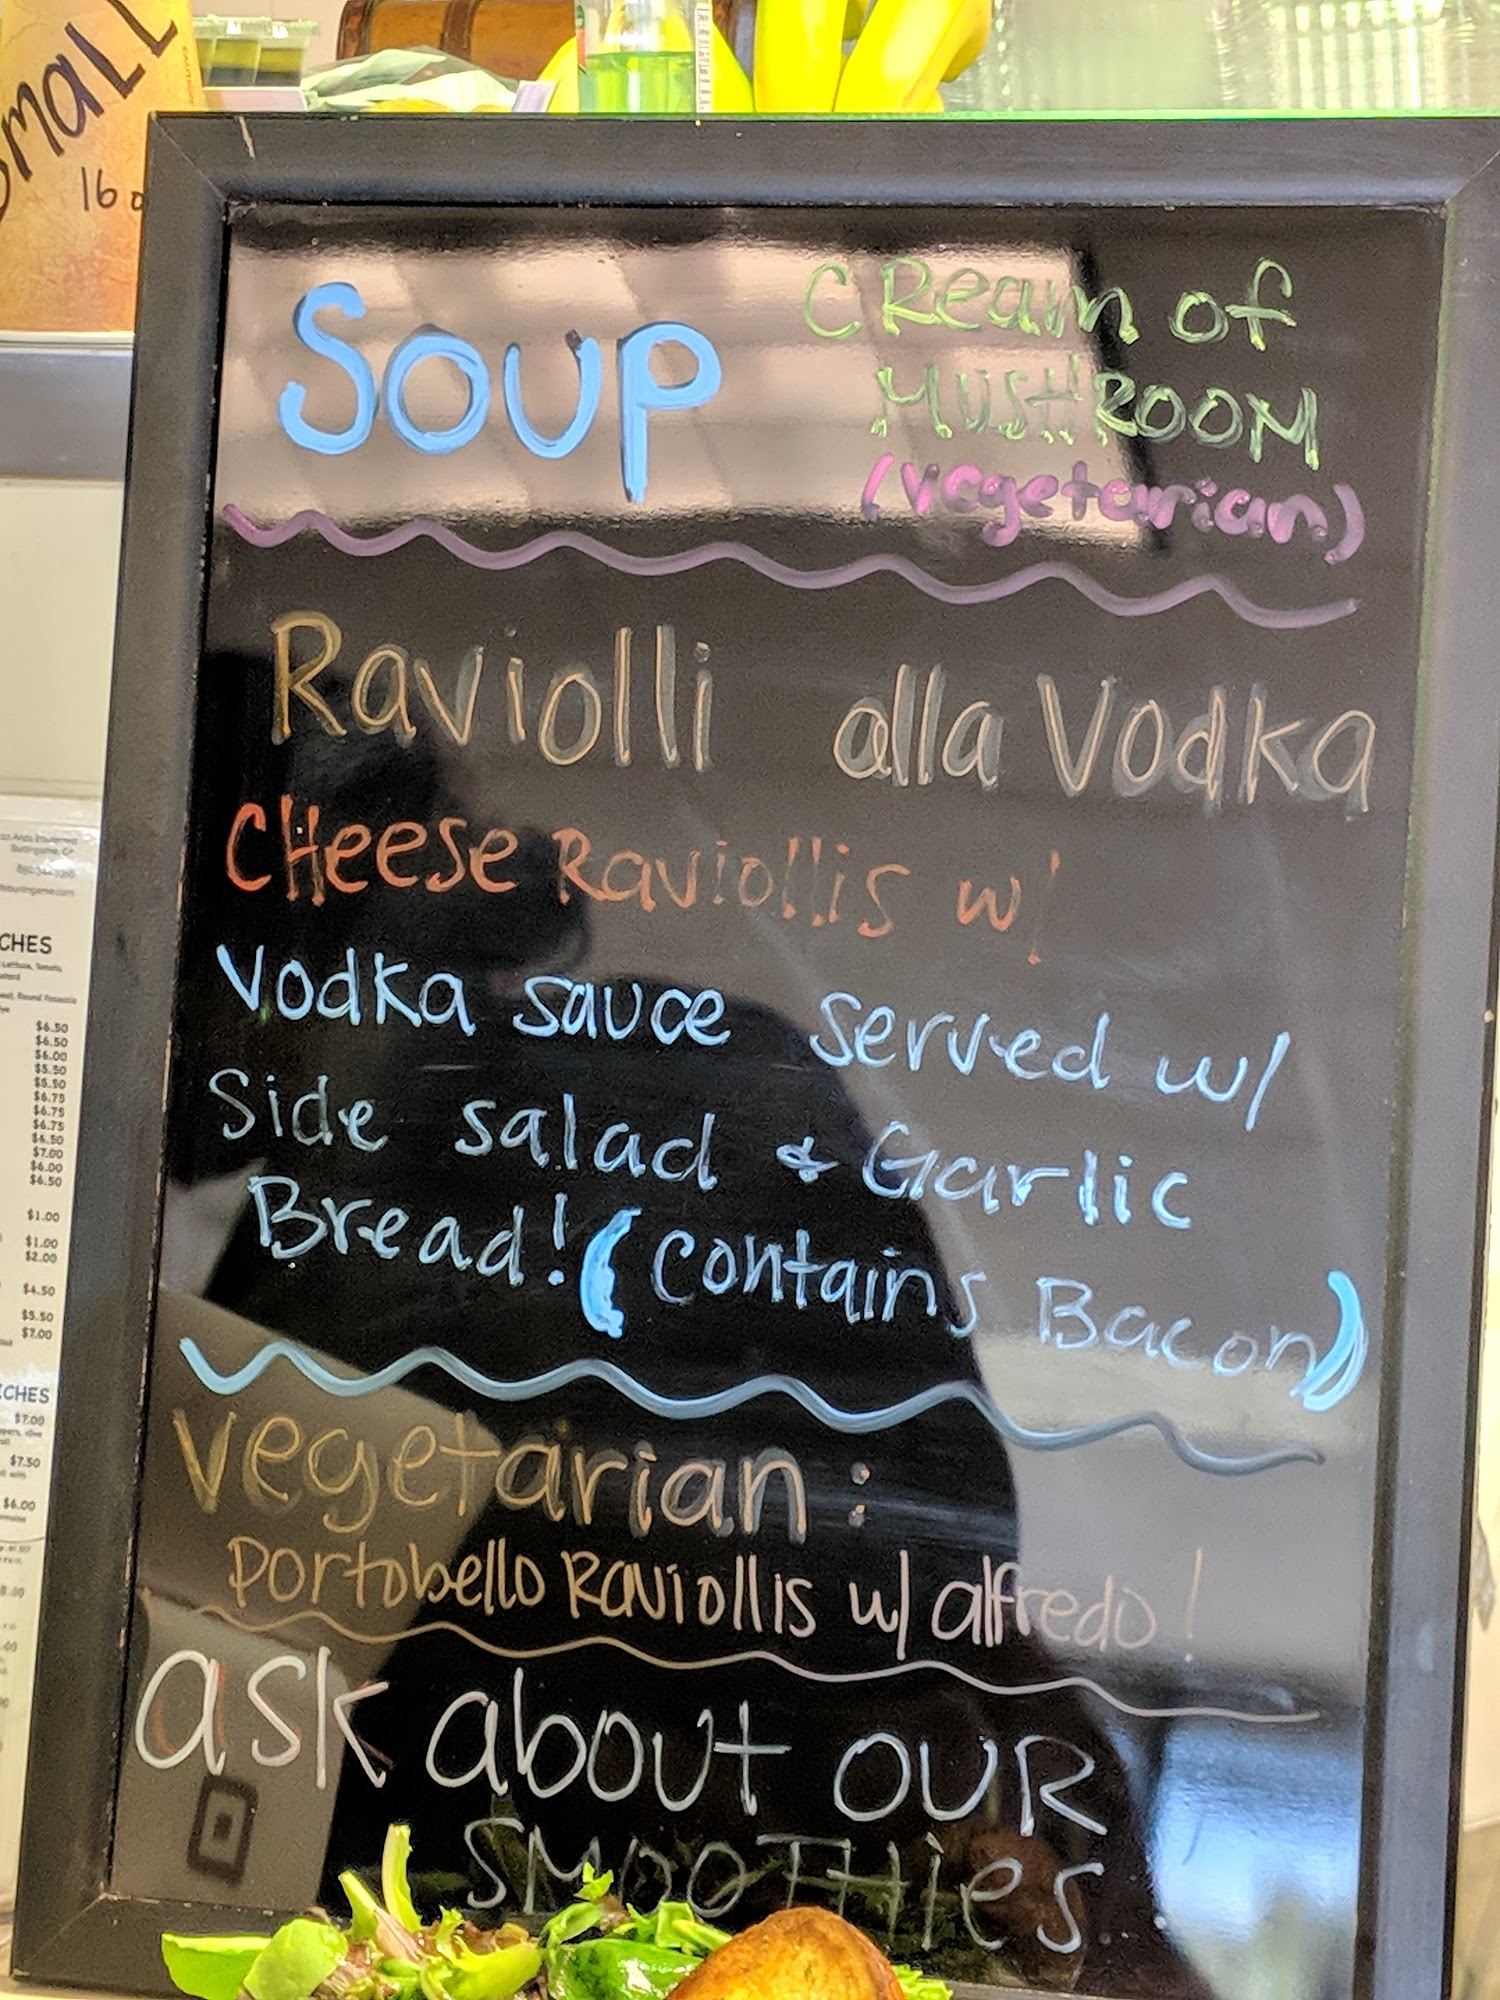 SmaLL
16
Soup
CReam of
MUSHROOM
(vegetarian)
Raviolli alla Vodka
CHeese Raviollis w/
Vodka sauce served w/
Side salad & Garlic
Bread! (contains Bacon)
vegetarian:
portobello Raviollis w/ alfredo!
ask about OUR
SMOOTHies
CHES
$6.50
$6.50
$6.00
$5.50
$5.50
$6.75
$6.75
$6.75
$6.50
$7.00
$6.00
$6.50
$1.00
$1.00
$2.00
$4.50
$5.50
$7.00
CHES
$7.00
$7.50
$6.00